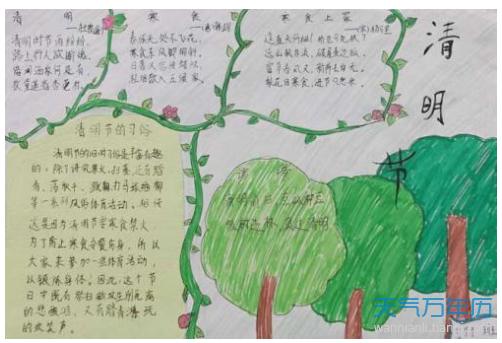 清明
清明时节雨纷纷
路上行人欲断魂
借问酒家何处有
寒食
春城无处不飞花
寒食东风御柳斜
日暮汉宫传蜡烛
轻烟散入五侯家
寒食上冢
清明节
清明节的习俗
清明节的习俗是丰富有趣
的，除了讲究禁火、扫墓，还有踏
青、荡秋千、蹴鞠、打马球、插柳
等一系列风俗体育活动。相传
这是因为清明节要寒食禁火，
为了防止寒食冷餐伤身，所以
大家来参加一些体育活动，
以锻炼身体。因此，这个节
日中既有祭扫新坟生别死离
的悲酸泪，又有踏青游玩
的欢笑声。
清明前后，点瓜种豆
植树造林，莫过清明
天气万年历
wannianli.tianqi.com
班